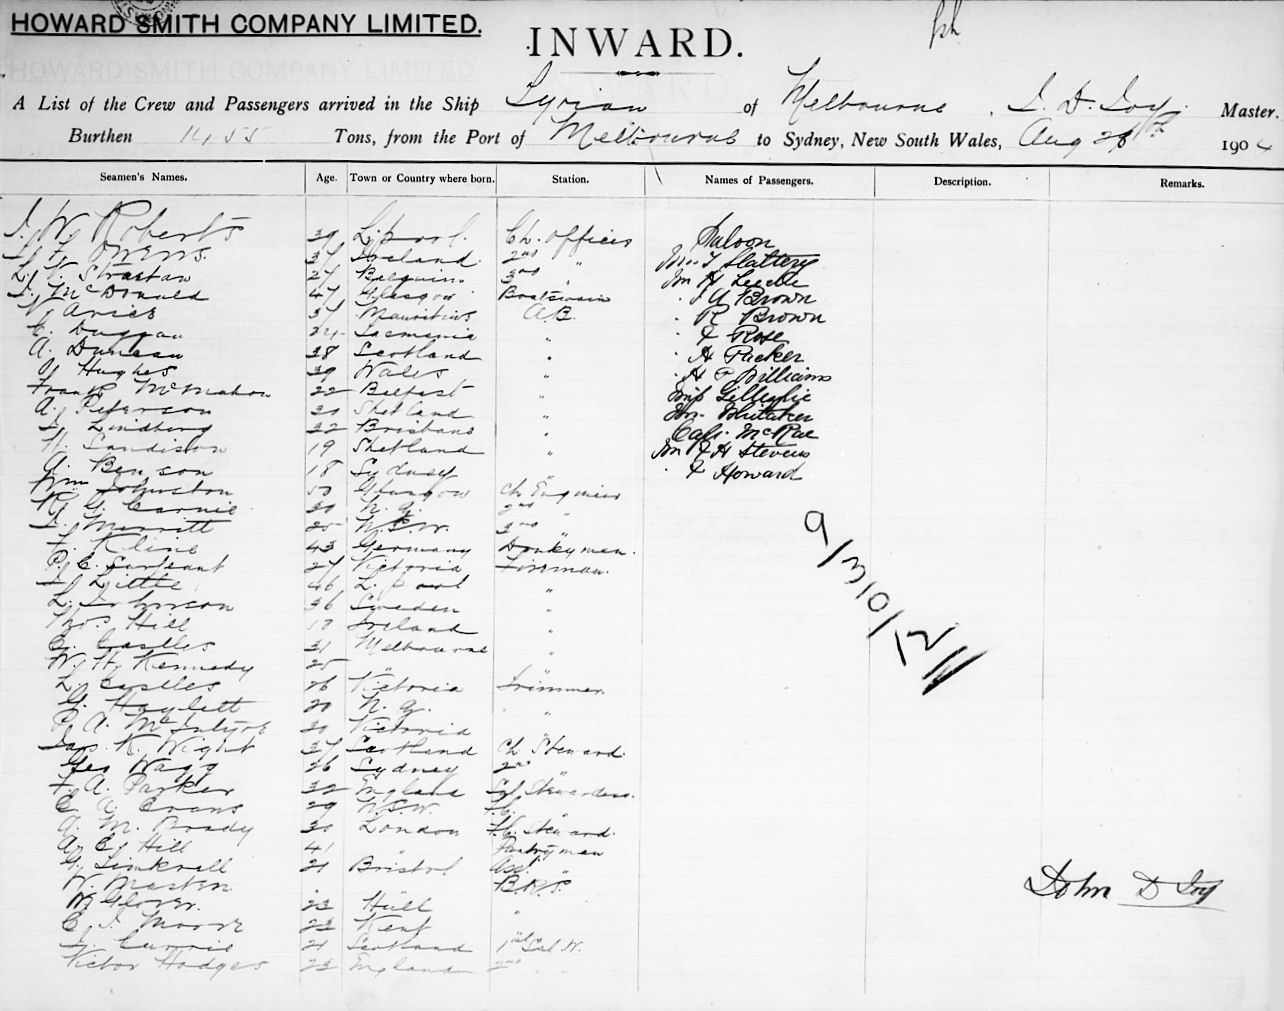 HOWARD SMITH COMPANY LIMITED.
INWARD.
A List of the Crew and Passengers arrived in the Ship Syrian of Melbourne, J. D. Joy. Master.
Burthen 1455 Tons, from the Port of Melbourne to Sydney, New South Wales, Aug 28th 1904
Seamen's Names. Age. Town or Country where born. Station. Names of Passengers. Description. Remarks.
J. W. Roberts 39 L.pool. Ch. Officer Saloon
Owens. 37 Ireland. 2nd " Slattery
Strachan 27 3rd " Mr H
J. McDonald 47 Glasgow Boatswain Brown
Aries 37 Mauritius A.B. R Brown
C. Duggan 24 Tasmania " Rose
A. Duncan 38 Scotland " H Packer
Hughes 39 Wales " Williams
Frank McMahon 22 Belfast " Miss Gillespie
A. Peterson 30 Shetland " Whitaker
Lindberg 32 Brisbane " Capt. McRae
H. Sandison 19 Shetland " H Stevens
A. Benson 18 Sydney Howard
Wm Johnston 50 Glasgow Ch Engineer
R. G. Carnie 30 N. Z. 2nd "
Merritt 25 N.S.W. 3rd "
Kline 43 Germany Donkyman.
P. C. Sargeant 27 Victoria Fireman.
Little 46 L.pool "
L. Johnson 36 Sweden "
Thos. Hill Ireland "
C. Castles 31 Melbourne "
W. H. Kennedy 25 " "
L. Castles 26 Victoria Trimmer.
G. Haylett 20 N. Z. "
P. A. McIntyre 30 Victoria
Jas. K. Wight 37 Scotland Ch Steward.
Geo Wagg 26 Sydney 2nd "
F. A. Parker 32 England Stewardess.
C. A. Evans 29 N.S.W. F.C. "
A. M. Brady 30 London F.C. Steward.
A. C. Hill 41 " Pantryman
G. 21 Bristol
W. Masters
W. Glover. 23 Hull "
C. J. Moore 23 Kent
Currie 21 Scotland 1st Sal W.
Victor Hodges 23 England 2nd "
9/3/0/1211
John D Joy